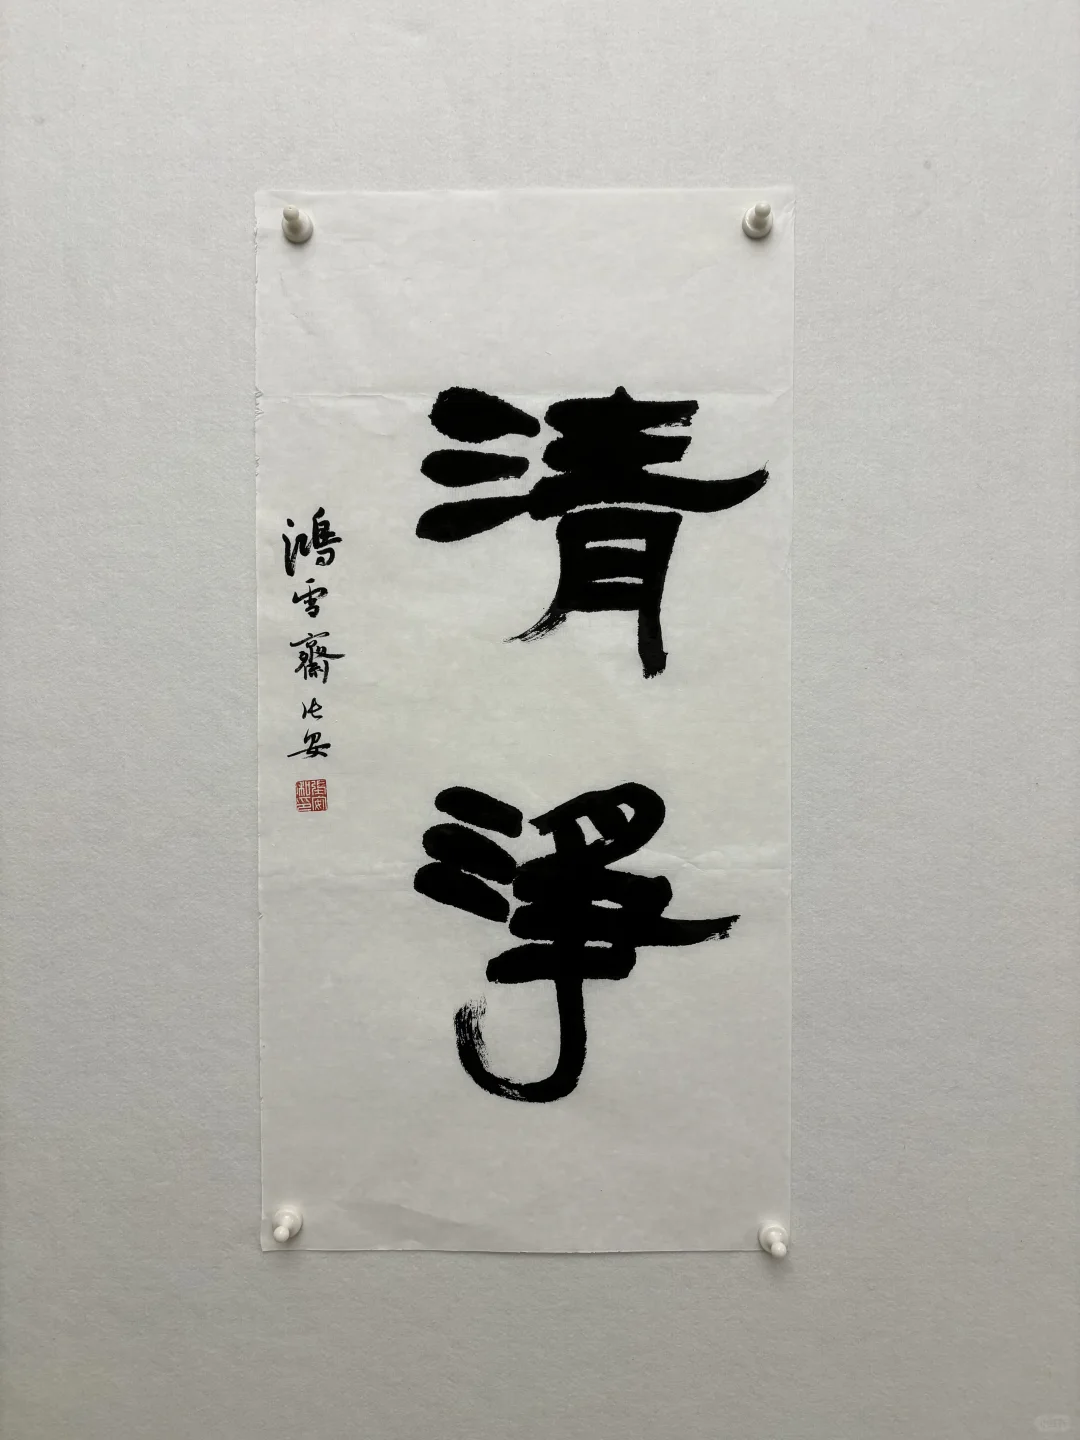 清淨
鴻雪齋张安